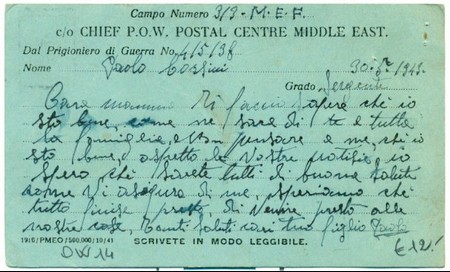 Campo Numero 3/3 - M.E.F.
c/o CHIEF P.O.W. POSTAL CENTRE MIDDLE EAST.
Dal Prigioniero di Guerra No. 4/5/38
Nome Paolo 30. 1943.
Grado Sergente
Cara mamma Ti faccio sapere che io
sto bene, come ne sarà di te e tutta
la famiglia, e non pensare a me, ch'io
sto bene, aspetto le vostre notizie, io
spero che sarete tutti di buona salute
come vi assicuro di me, speriamo che
tutto finisce presto, di venire presto alle
nostre case, tanti saluti cari tuo figlio Paolo
1916/PMEO/500,000/10/41 SCRIVETE IN MODO LEGGIBILE.
OW 14
€ 12.-